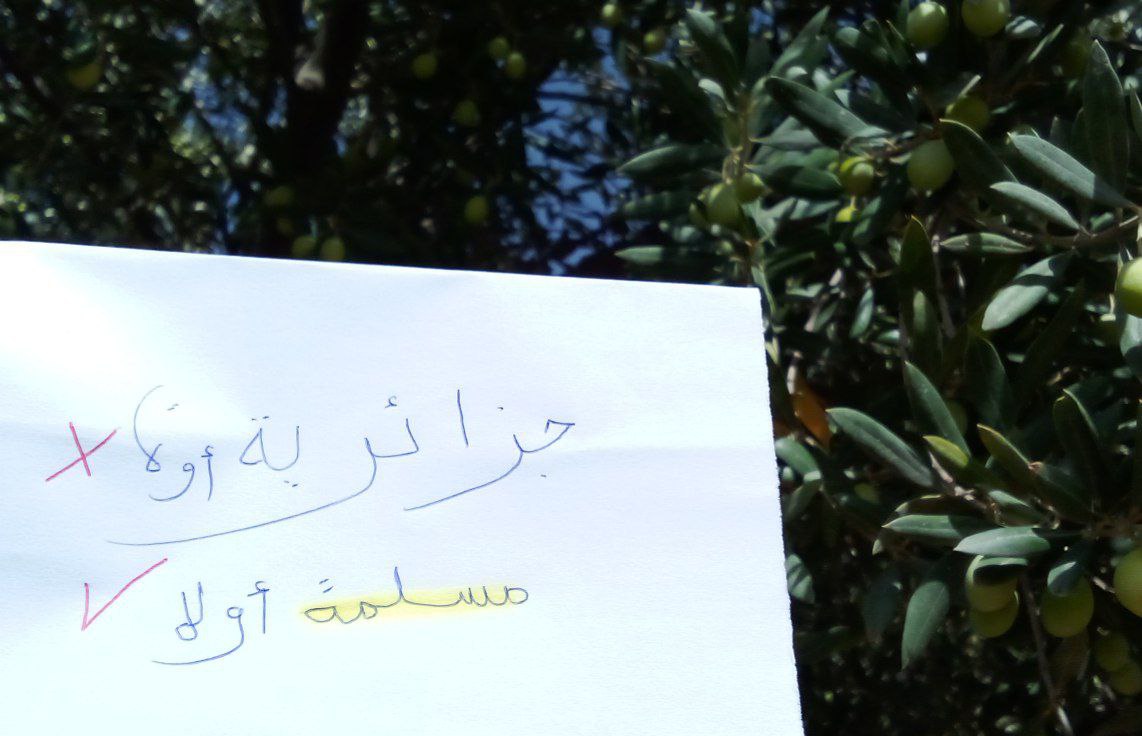 جزائرية أولاً
مسلمة أولا